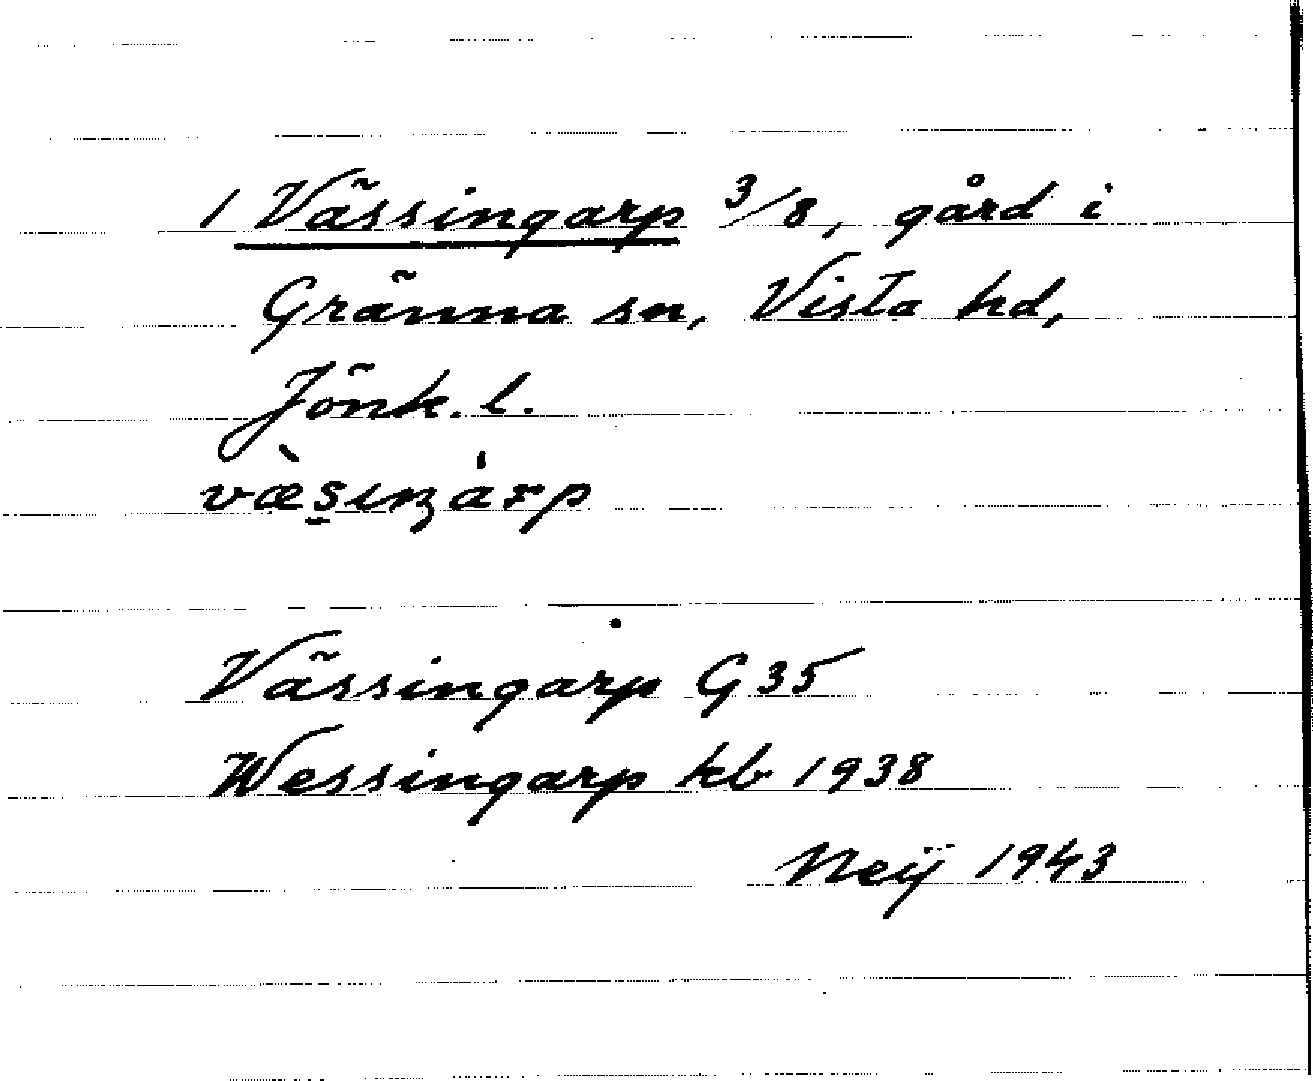 1 Vässingarp 3/8, gård i
Gränna sn, Vista hd,
Jönk. l.
væ̀s̱ıŋȧrp
Vässingarp G 35
Wessingarp kb 1938
Neij 1943